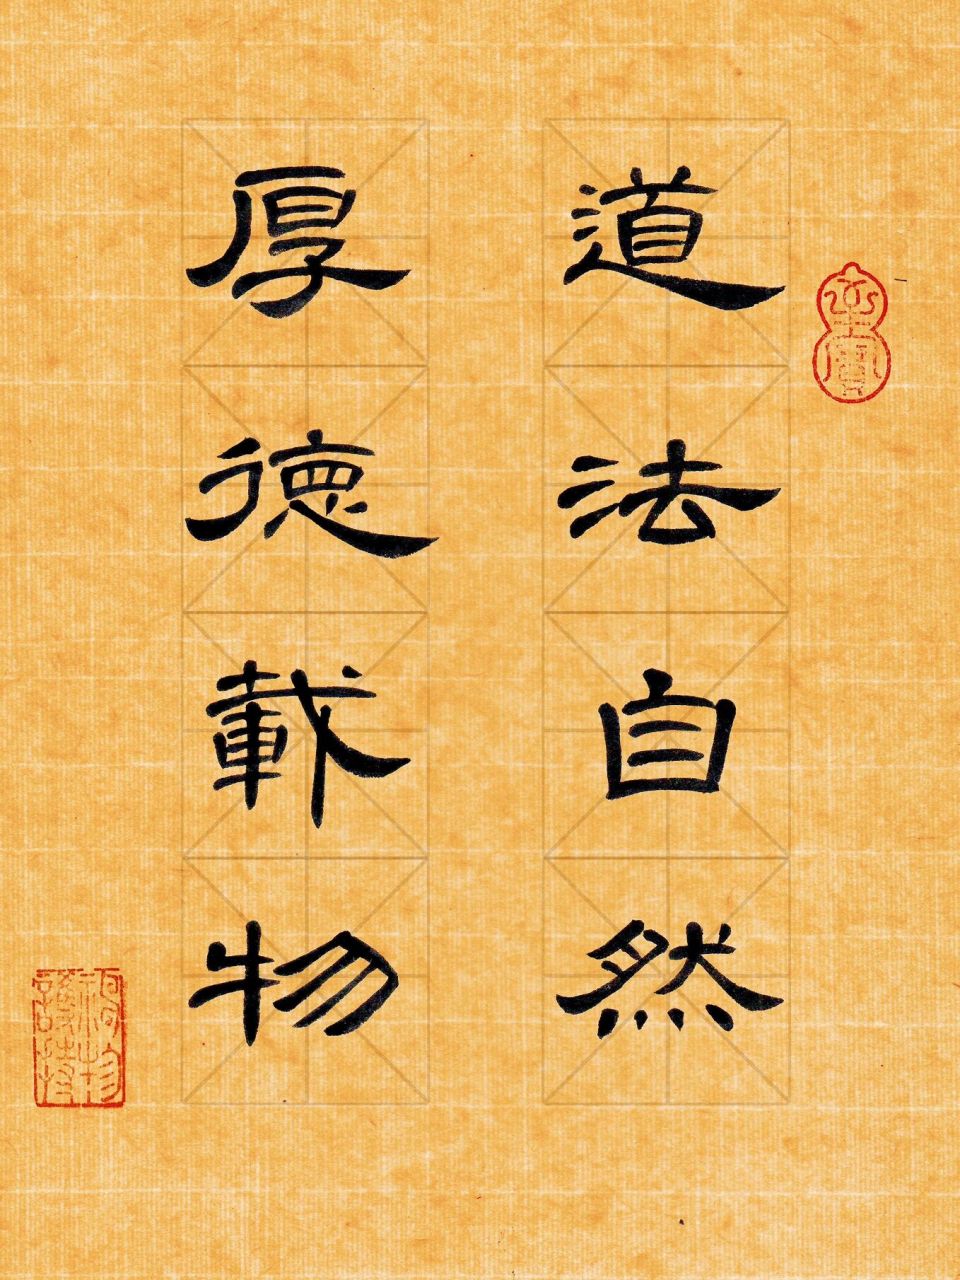 道法自然
厚德載物